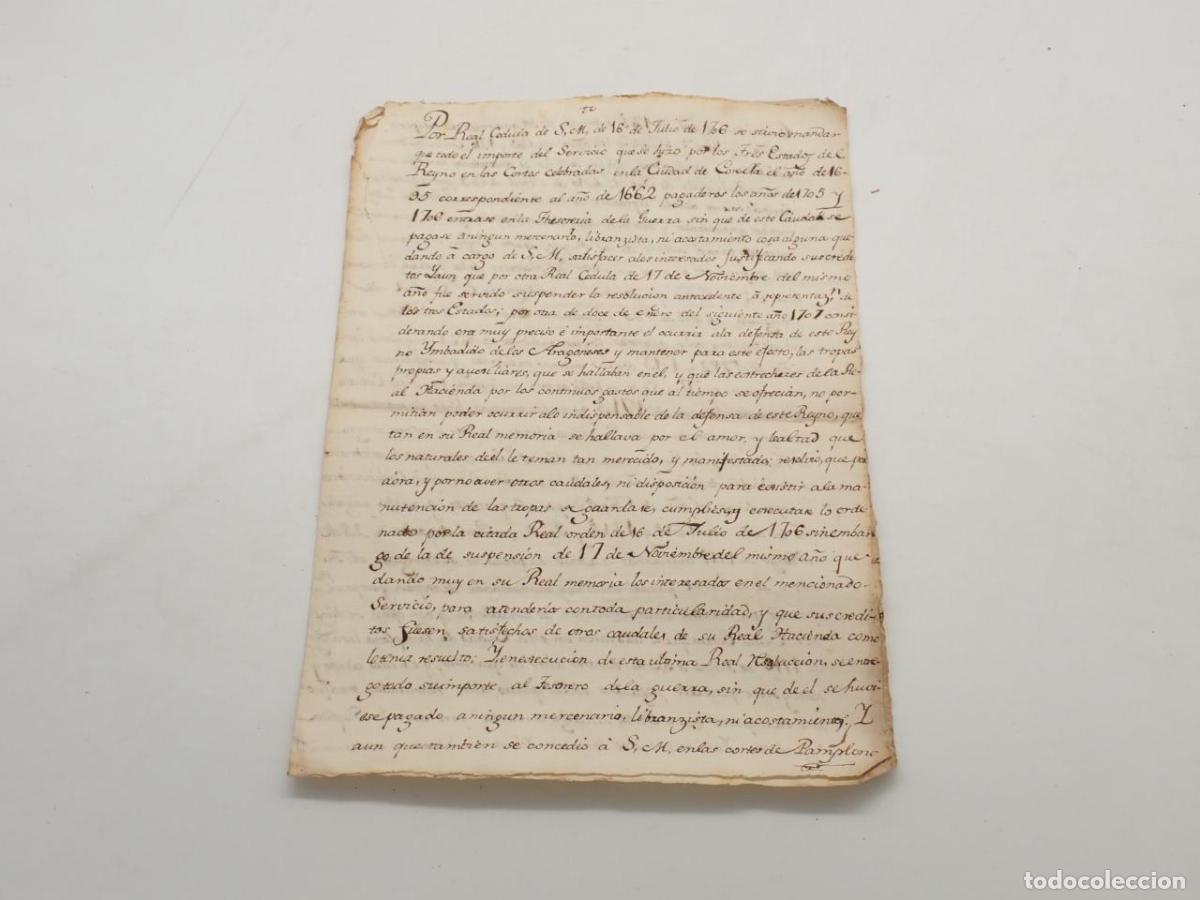 Por Real Cedula de S,M, de 16 de Julio de 1706 se sirvio mandar
que todo el importe del Servicio que se hizo por los Tres Estados de el
Reyno en las Cortes Celebradas en la Ciudad de Corella el año de 16-
95 correspondiente al año de 1662 pagaderos los años de 1705 y
1706 entrase en la Thesoreria de la Guerra sin que de este Caudal se
pagase aningun mercenario, libranzista, ni acostamiento cosa alguna que
dando à cargo de S,M, satisfacer alos interesados justificando sus credi
tos Yaun que por otra Real Cedula de 17 de Noviembre del mismo
año fue servido suspender la resolucion antecedente à representaz.n de
los tres Estados; por otra de doce de enero del siguiente año 1707 consi
derando era muy preciso è importante el ocurrir ala defensa de este Rey
no Ymbadido de los Aragoneses y mantener para este efecto, las tropas
propias y auxiliares, que se hallaban enel, y que las estrecheces de la Re
al Hacienda por los continuos gastos que al tiempo se ofrecian, no per
mitian poder ocurrir alo indispensable de la defensa de este Reyno, que
tan en su Real memoria se hallava por el amor, y lealtad que
los naturales de el le tenian tan merecido, y manifestado; resolvio, que por
aora, y por no aver otros caudales, ni disposicion para existir a la ma
nutencion de las tropas se guardase, cumpliese, y executase lo orde
nado por la citada Real orden de 16 de Julio de 1706 sinembar
go de la de suspension de 17 de Noviembre del mismo año que
dando muy en su Real memoria los interesados enel mencionado
Servicio, para atenderlos contoda particularidad, y que sus credi
tos fuesen satisfechos de otros caudales de su Real Hacienda como
lo tenia resuelto; Y enexecucion de esta ultima Real Resoluccion, se entre
go todo su importe al Tesorero de la guerra, sin que de el se huvi
ese pagado aningun mercenario, libranzista, ni acostamiento. Y
aun que tambien se concedio à S,M, en las cortes de Pamplona
todocoleccion